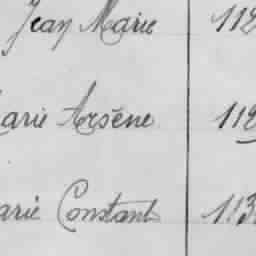 Jean Marie 112
arie Arsène 112
arie Constant 113